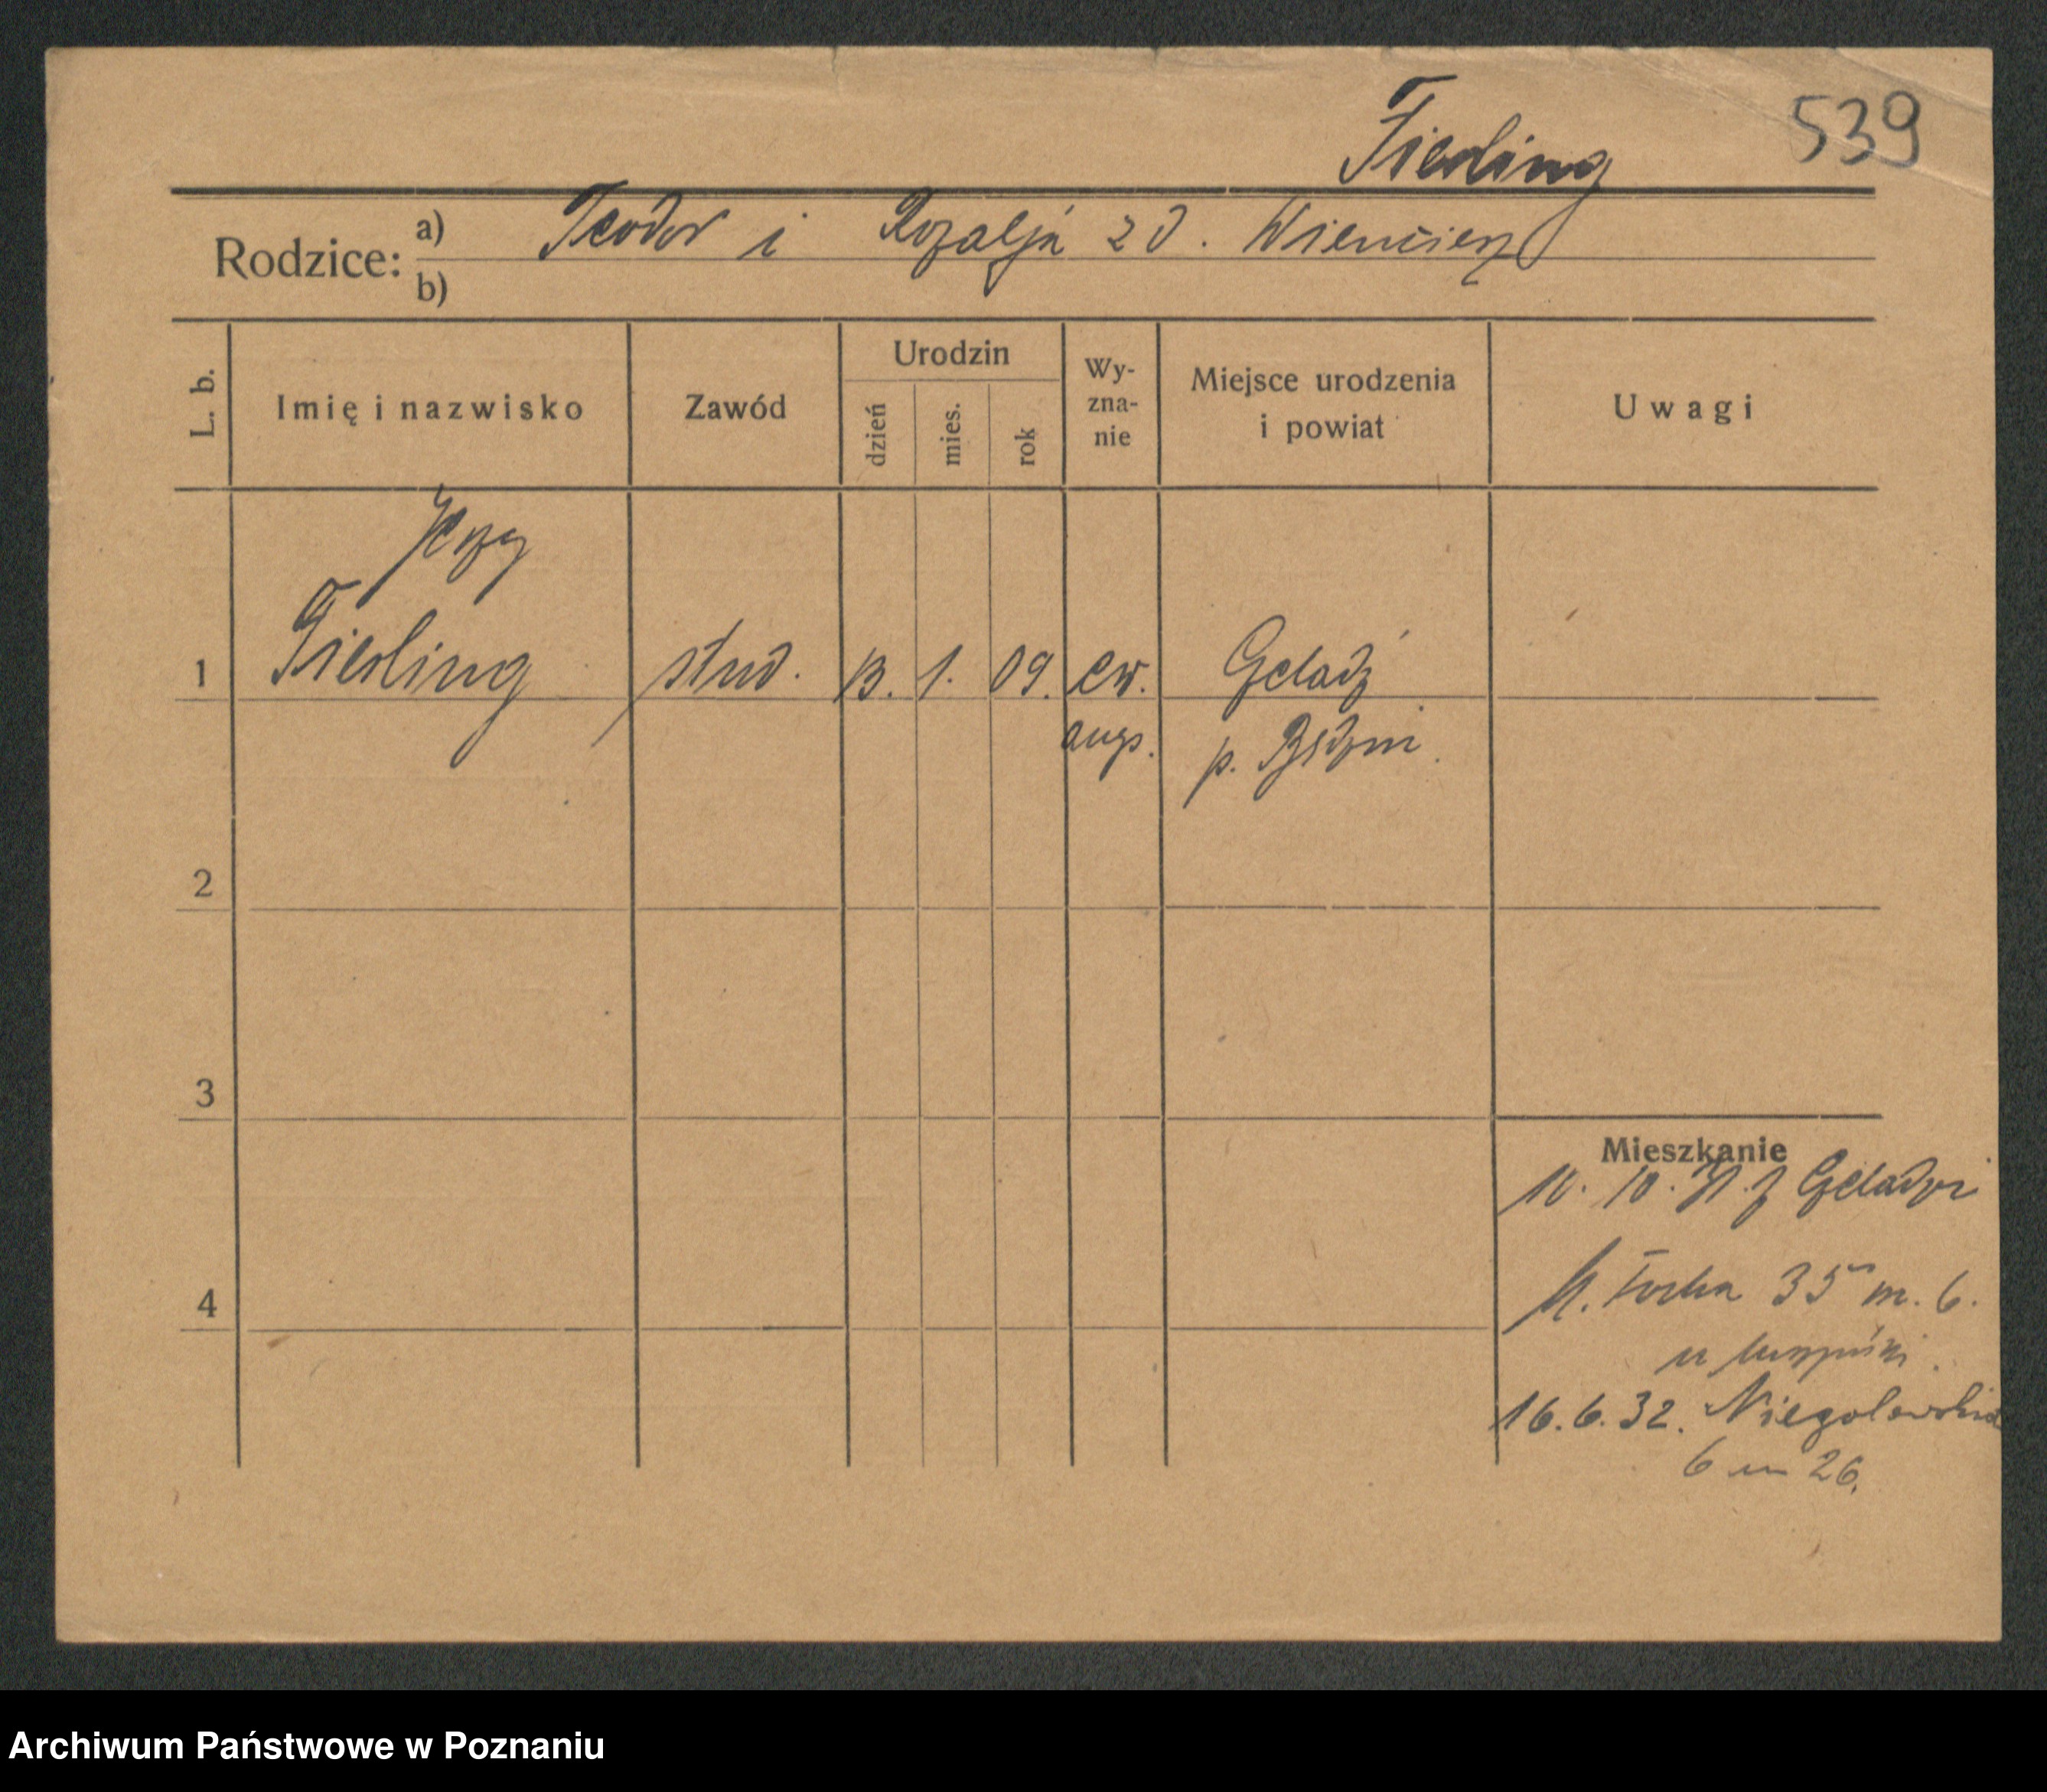 Fierling
539
Rodzice:
a) Teodor i Rozalja z d.
b)
L. b.
Imię i nazwisko
Zawód
Urodzin
dzień
mies.
rok
Wy-
zna-
nie
Miejsce urodzenia
i powiat
Uwagi
Jerzy
1 Fierling stud. 13. 1. 09. ew.
augs. p.
2
3
Mieszkanie
10. 10. 31. z
4
M. Focha 35 m. 6.
u
16. 6. 32. Niegolewskich
6 m 26.
Archiwum Państwowe w Poznaniu